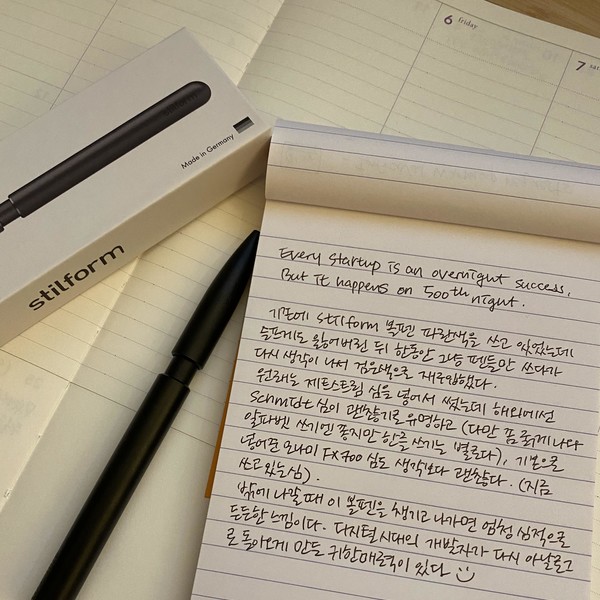 6 friday
7 sat
Made in Germany
stilform
Every startup is an overnight success.
But it happens on 500th night.
기존에 stilform 볼펜 파란색을 쓰고 있었는데
슬프게도 잃어버린 뒤 한동안 그냥 펜들만 쓰다가
다시 생각이 나서 검은색으로 재구입했다.
원래도 제트스트림 심을 넣어서 썼는데 해외에선
Schmidt 심이 괜찮기로 유명하고 (다만 좀 굵게 나와
알파벳 쓰기엔 좋지만 한글 쓰기는 별로다), 기본으로
넣어둔 모나미 FX700 심도 생각보다 괜찮다. (지금
쓰고 있는 심).
밖에 나갈 때 이 볼펜을 챙기고 나가면 엄청 심적으로
든든한 느낌이다. 디지털 시대의 개발자가 다시 아날로그
로 돌아오게 만든 귀한 매력이 있다